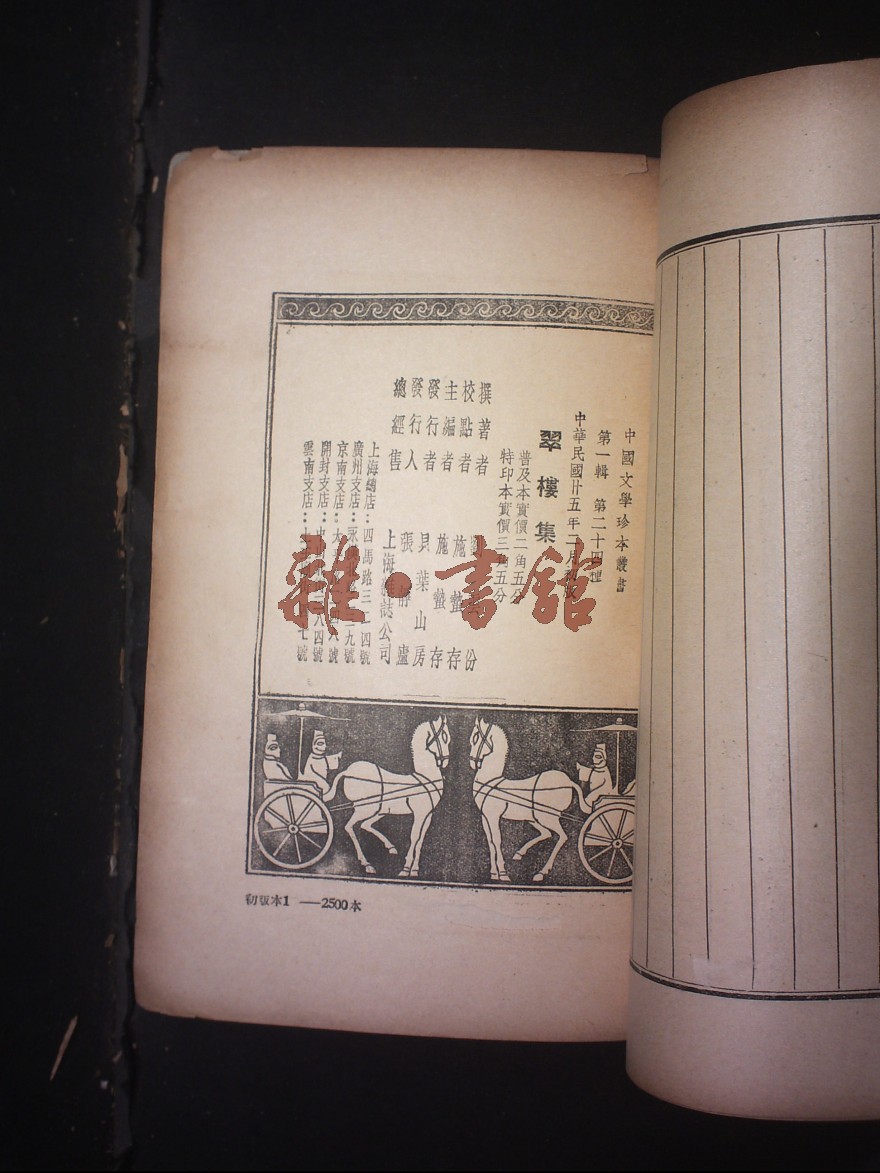 中國文學珍本叢書
第一輯 第二十四種
中華民國廿五年二月初版
翠樓集
普及本實價二角五分
特印本實價三角五分
撰著者 份
校點者 施蟄存
主編者 施蟄存
發行者 貝葉山房
發行人 張靜廬
總經售 上海雜誌公司
上海總店：四馬路三二四號
廣州支店：永 九號
京南支店：太 號
開封支店：中 八四號
雲南支店： 七號
初版本1——2500本
雜·書館